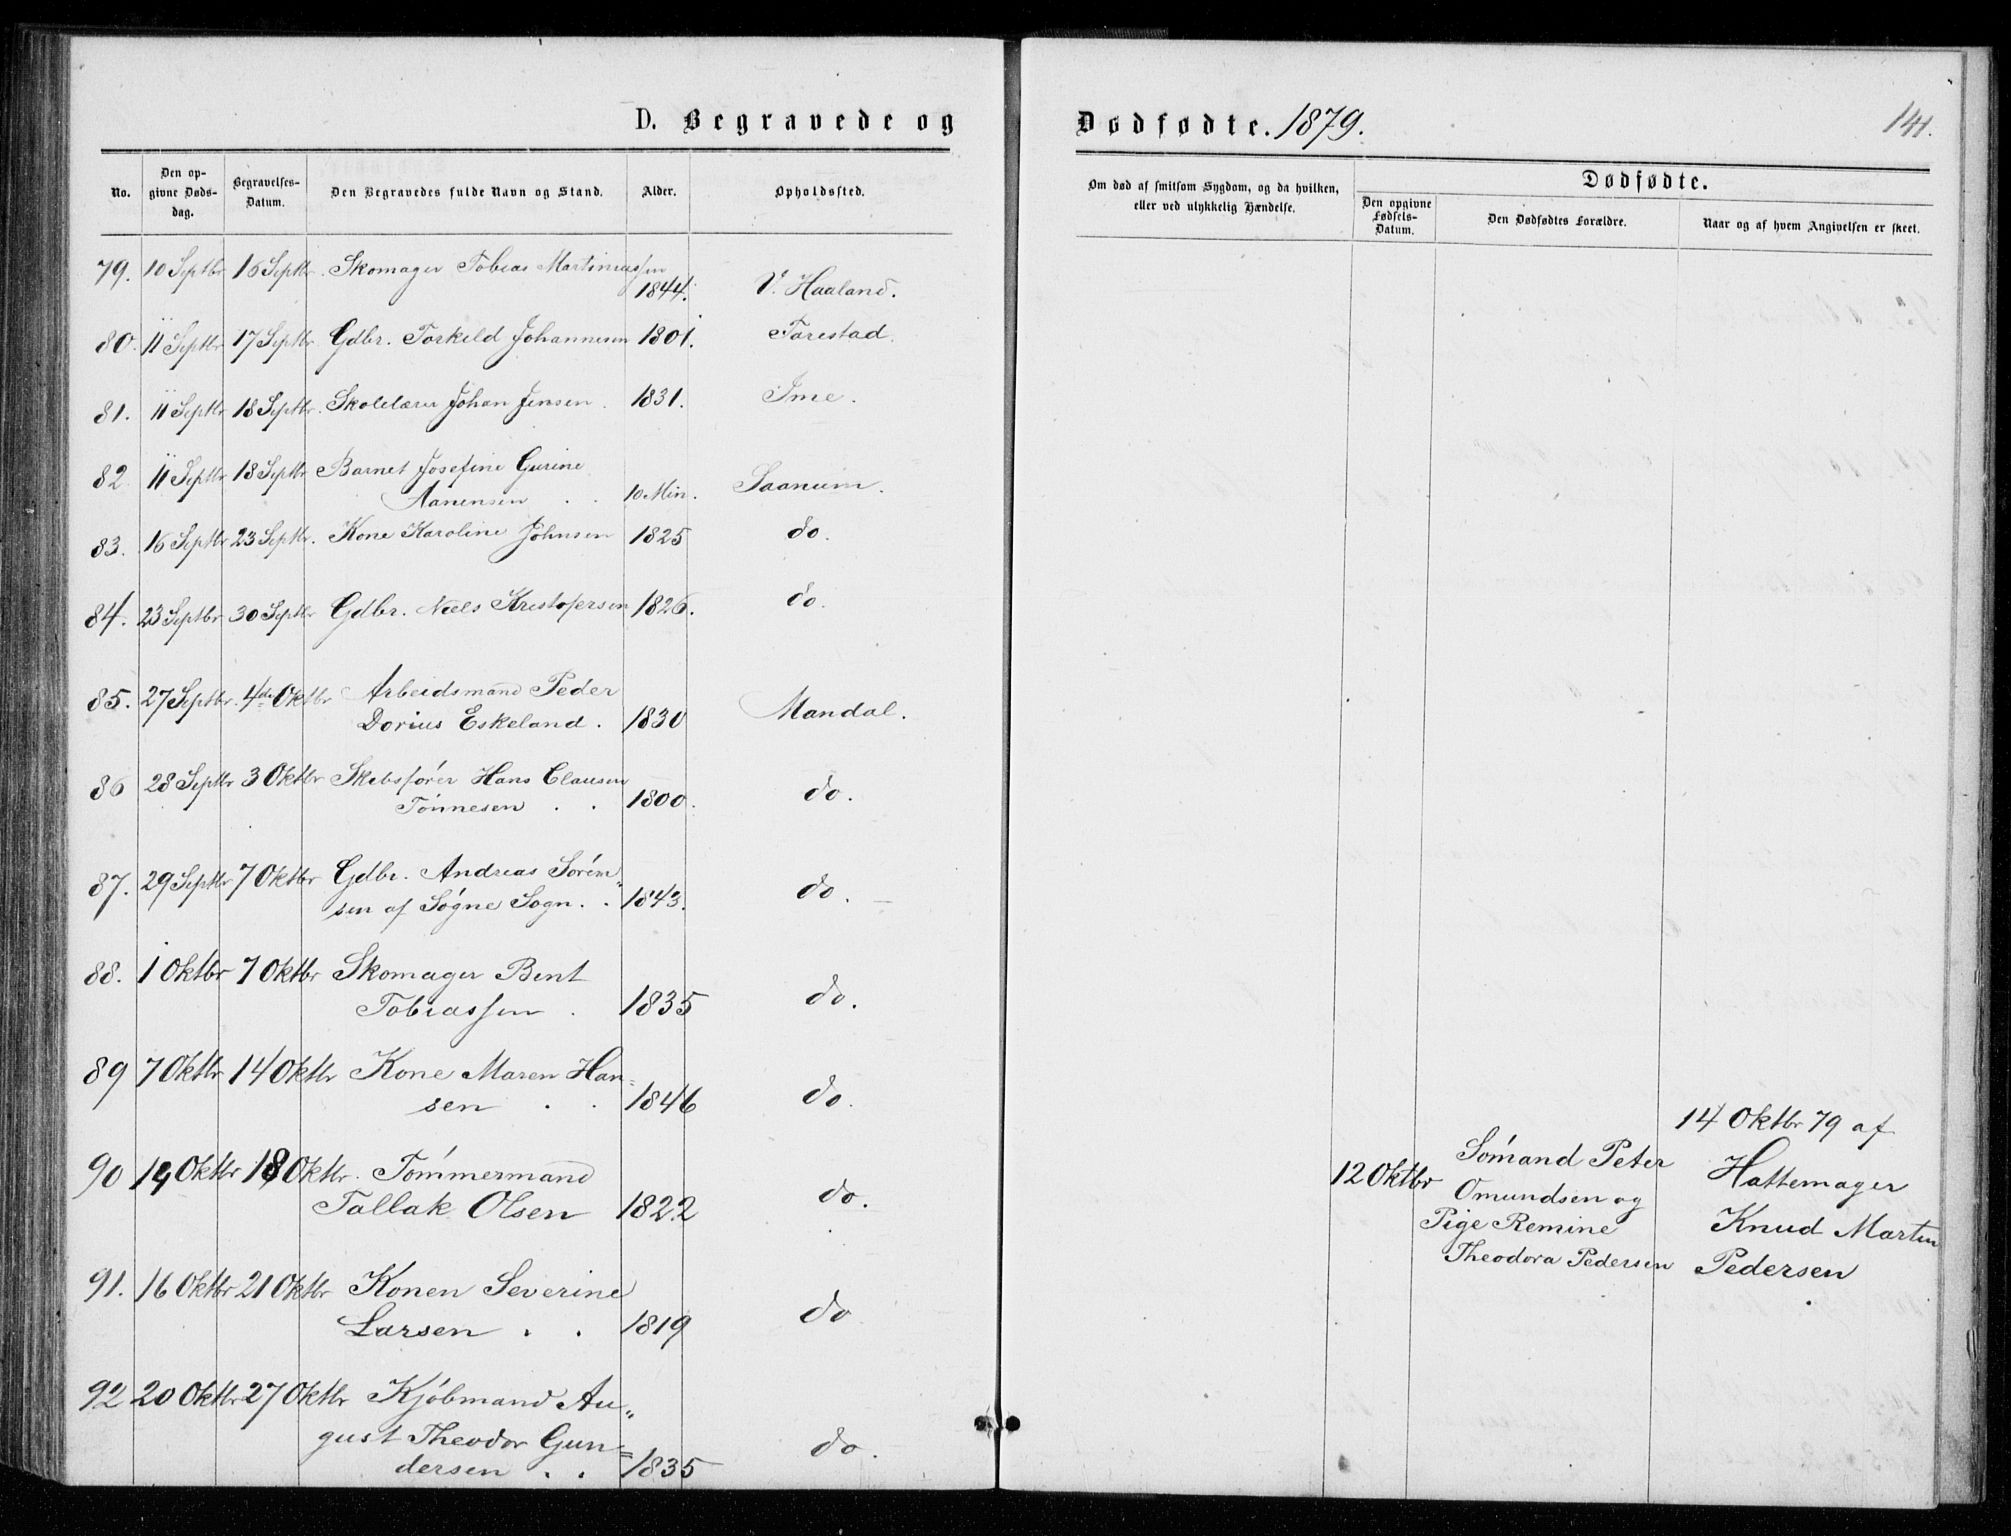 D. Begravede og
No.
Den opgivne Dødsdag.
Begravelses-Datum.
Den Begravedes fulde Navn og Stand.
Alder.
Opholdssted.
79. 10 Septbr 16 Septbr. Skomager Tobias Martiniussen
1844. V. Haaland.
80. 11 Septbr 17 Septbr. Gdbr. Torkeld Johannesen 1801. Tarestad.
81. 11 Septbr 18 Septbr. Skolelærer Johan Jensen. 1831. Ime.
82. 11 Septbr 18 Septbr Barnet Josefine Gurine
Aanensen . . 10 Min. Saanum.
83. 16 Septbr 23 Septbr. Kone Karoline Johnsen 1825 do.
84. 23 Septbr 30 Septbr Gdbr. Niels Kristofersen 1826. do.
85. 27 Septbr. 4de Oktbr Arbeidsmand Peder
Dorius Eskeland. 1830 Mandal.
86 28 Septbr 3 Oktbr Skibsfører Hans Clausen
Tönnesen . . 1800. do.
87. 29 Septbr 7 Oktbr Gdbr. Andreas Sören„
sen af Søgne Sogn. . 1843. do.
88. 1 Oktbr 7 Oktbr Skomager Bent
Tobiassen . 1835 do.
89 7 Oktbr 14 Oktbr Kone Maren Han=
sen . . 1846 do.
90 14 Oktbr 18 Oktbr. Tömmermand
Tallak Olsen 1822 do.
91. 16 Oktbr 21 Oktbr Konen Severine
Larsen . . 1819 do
92 20 Oktbr 27 Oktbr Kjöbmand Au„
gust Theodor Gun=
dersen . . 1835 do.
Dødfødte. 1879.
141.
Om død af smitsom Sygdom, og da hvilken,
eller ved ulykkelig Hændelse.
Dødfødte.
Den opgivne
Fødsels-
Datum.
Den Dødfødtes Forældre.
Naar og af hvem Angivelsen er skeet.
12 Oktbr
Sömand Peter
Omundsen og
Pige Remine
Theodora Pedersen
14 Oktbr 79 af
Hattemager
Knud Martin
Pedersen